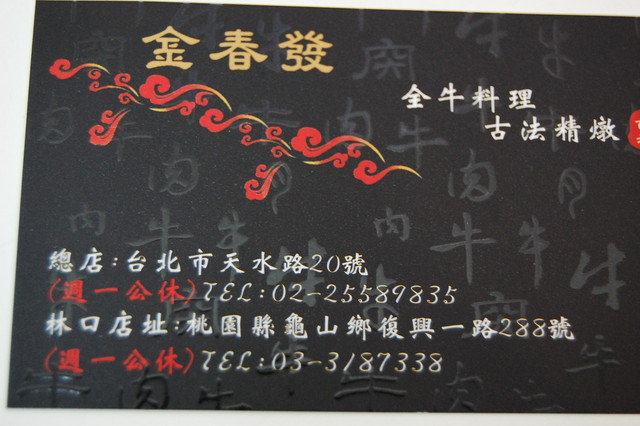 金春發
全牛料理
古法精燉
總店:台北市天水路20號
(週一公休)TEL:02-25589835
林口店址:桃園縣龜山鄉復興一路288號
(週一公休)TEL:03-3187338